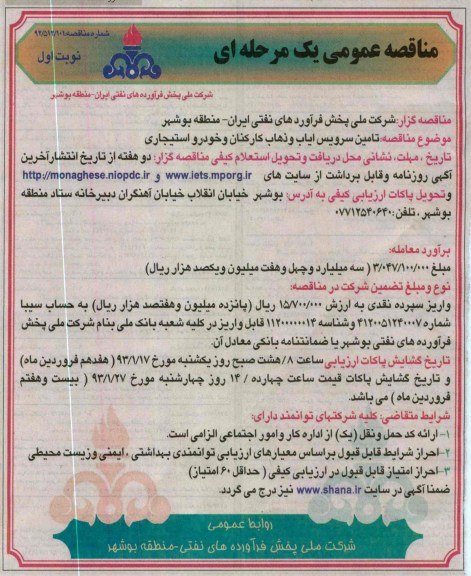 شماره مناقصه: ۹۲/۵۱۲/۱۰۱
مناقصه عمومی یک مرحله ای
نوبت اول
شرکت ملی پخش فرآورده های نفتی ایران-منطقه بوشهر
مناقصه گزار: شرکت ملی پخش فرآورده های نفتی ایران- منطقه بوشهر
موضوع مناقصه: تامین سرویس ایاب وذهاب کارکنان وخودرو استیجاری
تاریخ ، مهلت، نشانی محل دریافت وتحویل استعلام کیفی مناقصه گزار: دو هفته از تاریخ انتشارآخرین
آگهی روزنامه وقابل برداشت از سایت های www.iets.mporg.ir و http://monaghese.niopdc.ir
وتحویل پاکات ارزیابی کیفی به آدرس: بوشهر خیابان انقلاب خیابان آهنگران دبیرخانه ستاد منطقه
بوشهر ، تلفن: ۰۷۷۱۲۵۴۰۶۳۰
برآورد معامله:
مبلغ ۳/۰۴۷/۱۰۰/۰۰۰ ( سه میلیارد وچهل وهفت میلیون ویکصد هزار ریال)
نوع ومبلغ تضمین شرکت در مناقصه:
واریز سپرده نقدی به ارزش ۱۵/۷۰۰/۰۰۰ ریال (پانزده میلیون وهفتصد هزار ریال) به حساب سیبا
شماره ۴۱۲۰۰۵۱۲۴۰۰۷ وشناسه ۱۱۲۰۰۰۰۰۰۱۴ قابل واریز در کلیه شعبه بانک ملی بنام شرکت ملی پخش
فرآورده های نفتی بوشهر یا ضمانتنامه بانکی معادل آن.
تاریخ گشایش پاکات ارزیابی ساعت ۸/هشت صبح روز یکشنبه مورخ ۹۳/۱/۱۷ ( هفدهم فروردین ماه)
و تاریخ گشایش پاکات قیمت ساعت چهارده / ۱۴ روز چهارشنبه مورخ ۹۳/۱/۲۷ ( بیست وهفتم
فروردین ماه ) می باشد.
شرایط متقاضی: کلیه شرکتهای توانمند دارای:
۱- ارائه کد حمل ونقل (یک) از اداره کار وامور اجتماعی الزامی است.
۲-احراز شرایط قابل قبول براساس معیارهای ارزیابی توانمندی بهداشتی ، ایمنی وزیست محیطی
۳-احراز امتیاز قابل قبول در ارزیابی کیفی ( حداقل ۶۰ امتیاز)
ضمنا آکهی در سایت www.shana.ir نیز درج می گردد.
روابط عمومی
شرکت ملی پخش فرآورده های نفتی-منطقه بوشهر